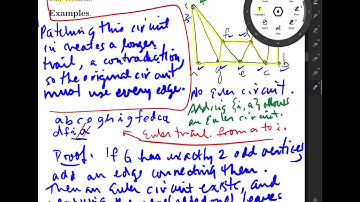 Examples.
Patching this circuit
in creates a longer
trail, a contradiction,
so the original circuit
must use every edge.
No Euler circuit.
Adding {i,a} allows
an Euler circuit.
abcoghigfedca
dfia
Euler trail from a to i.
Proof. If G has exactly 2 odd vertices
add an edge connecting them.
Then an Euler circuit exists, and